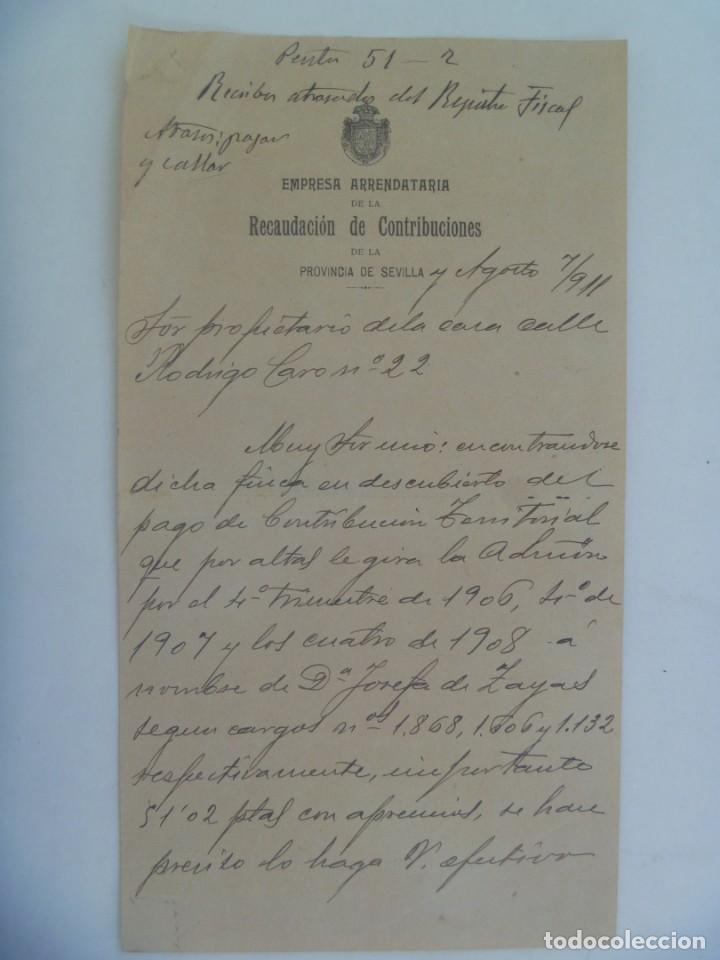 51 - 2
Recibos atrasados del Registro Fiscal
Atrasos: pagar
y callar
EMPRESA ARRENDATARIA
DE LA
Recaudación de Contribuciones
DE LA
PROVINCIA DE SEVILLA y Agosto 7/911
Sor propietario de la casa calle
Rodrigo Caro nº 22
Muy Sor mio: encontrandose
dicha finca en descubierto del
pago de Contribucion Territorial
que por altas le gira la Admón
por el 4º trimestre de 1906, 4º de
1907 y los cuatro de 1908 á
nombre de Dª Josefa de Zayas
segun cargos nos 1.868, 1.606 y 1.132
respectivamente, importante
51'02 ptas con apremios, se hace
preciso lo haga V. efectivo
todocoleccion.net